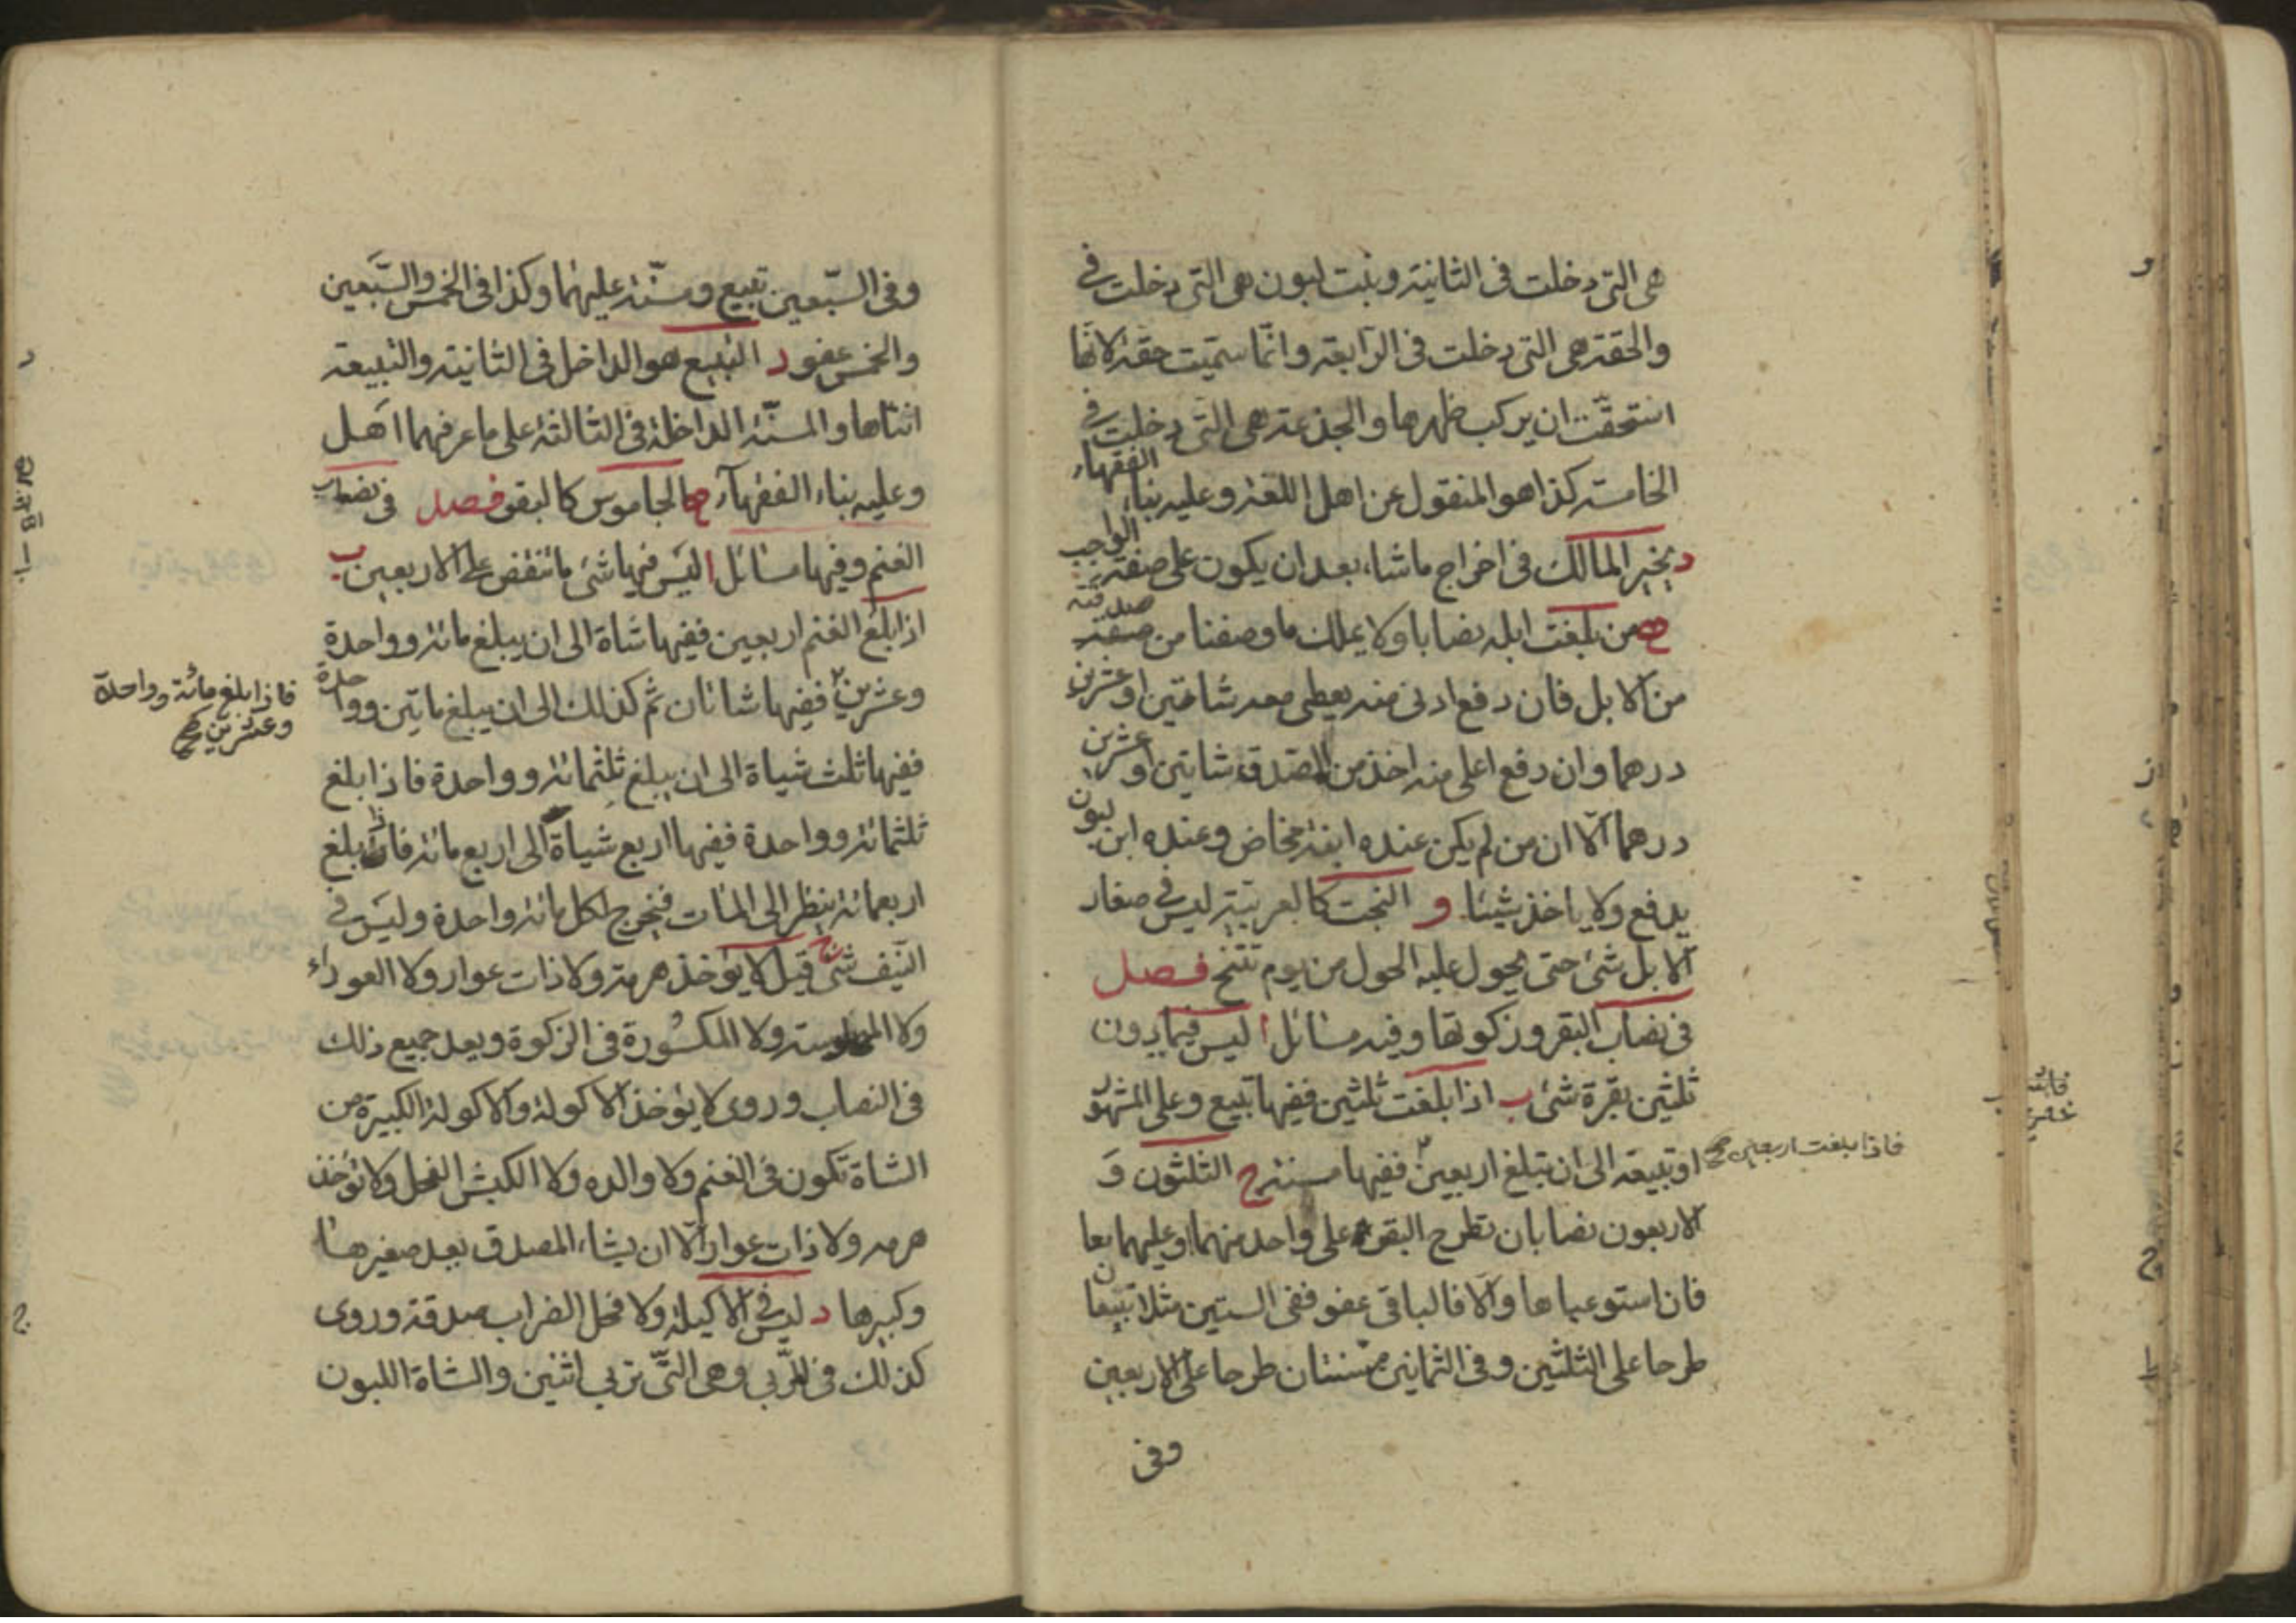 هى التى دخلت فى الثانية وبنت لبون هى التى دخلت فى
والحقة هى التى دخلت فى الرّابعة وانّما سمّيت حقة لانها
استحقّت ان يركب ظهرها والجذعة هى التى دخلت فى
الخامسة كذا هو المنقول عن اهل اللغة وعليه بناء الفقهاء
د يخير المالك فى اخراج ما شاء بعد ان يكون على صفة الواجب
ه من بلغت ابله نصابا ولا يملك ما وصفنا من صفة صدقته
من الابل فان دفع ادنى منه يعطى معه شاتين او عشرين
درهما وان دفع اعلى منه اخذ من المصدق شاتين او عشرين
درهما الّا ان من لم يكن عنده ابنة مخاض وعنده ابن لبون
يدفع ولا ياخذ شيئا و البخت كالعربية ليس فى صغار
الابل شئ حتى يحول عليه الحول من يوم تنتج فصل
فى نصاب البقر وزكوتها وفيه مسائل ا ليس فيما دون
ثلثين بقرة شئ ب اذا بلغت ثلثين ففيها تبيع وعلى المشهور
او تبيعة الى ان تبلغ اربعين ففيها مسنة ج الثلثون و
فاذا بلغت اربعين صح
الاربعون نصابان تطرح البقر على واحد منهما او عليهما معا
فان استوعباها والّا فالباقى عفو ففى الستين مثلا تبيعان
طرحا على الثلثين وفى الثمانين مسنتان طرحا على الاربعين
وفى
وفى السّبعين تبيع ومسنّة عليهما وكذا فى الخمس والسّبعين
والخمس عفو د التبيع هو الداخل فى الثانية والتبيعة
انثاها والمسنّة الداخلة فى الثالثة على ما عرفهما اهل
وعليه بناء الفقهآء ه الجاموس كالبقر فصل فى نصاب
الغنم وفيها مسائل ا ليس فيها شئ ما تنقص على الاربعين ب
اذا بلغ الغنم اربعين ففيها شاة الى ان يبلغ مائة وواحدة
وعشرين ففيها شاتان ثم كذلك الى ان يبلغ ماتين وواحدة
فاذا بلغ مائة وواحدة
وعشرين صح
ففيها ثلث شياة الى ان يبلغ ثلثمائة وواحدة فاذا بلغ
ثلثمائة وواحدة ففيها اربع شياة الى اربع مائة فاذا بلغ
اربعمائة ينظر الى المئات فيخرج لكل مائة واحدة وليس فى
النّيف شئ ج قيل لا يؤخذ هرمة ولا ذات عوار ولا العوراء
ولا ولا المكسورة فى الزكوة ويعد جميع ذلك
فى النصاب وروى لا يؤخذ الاكولة والاكولة الكبيرة من
الشاة تكون فى الغنم ولا والده ولا الكبش الفحل ولا تؤخذ
هرمه ولا ذات عوار الّا ان يشاء المصدق بعد صغيرها
وكبيرها د ليس فى الاكيلة ولا فحل الضراب صدقة وروى
كذلك فى الرّبى وهى التّى تربى اثنين والشاة اللبون